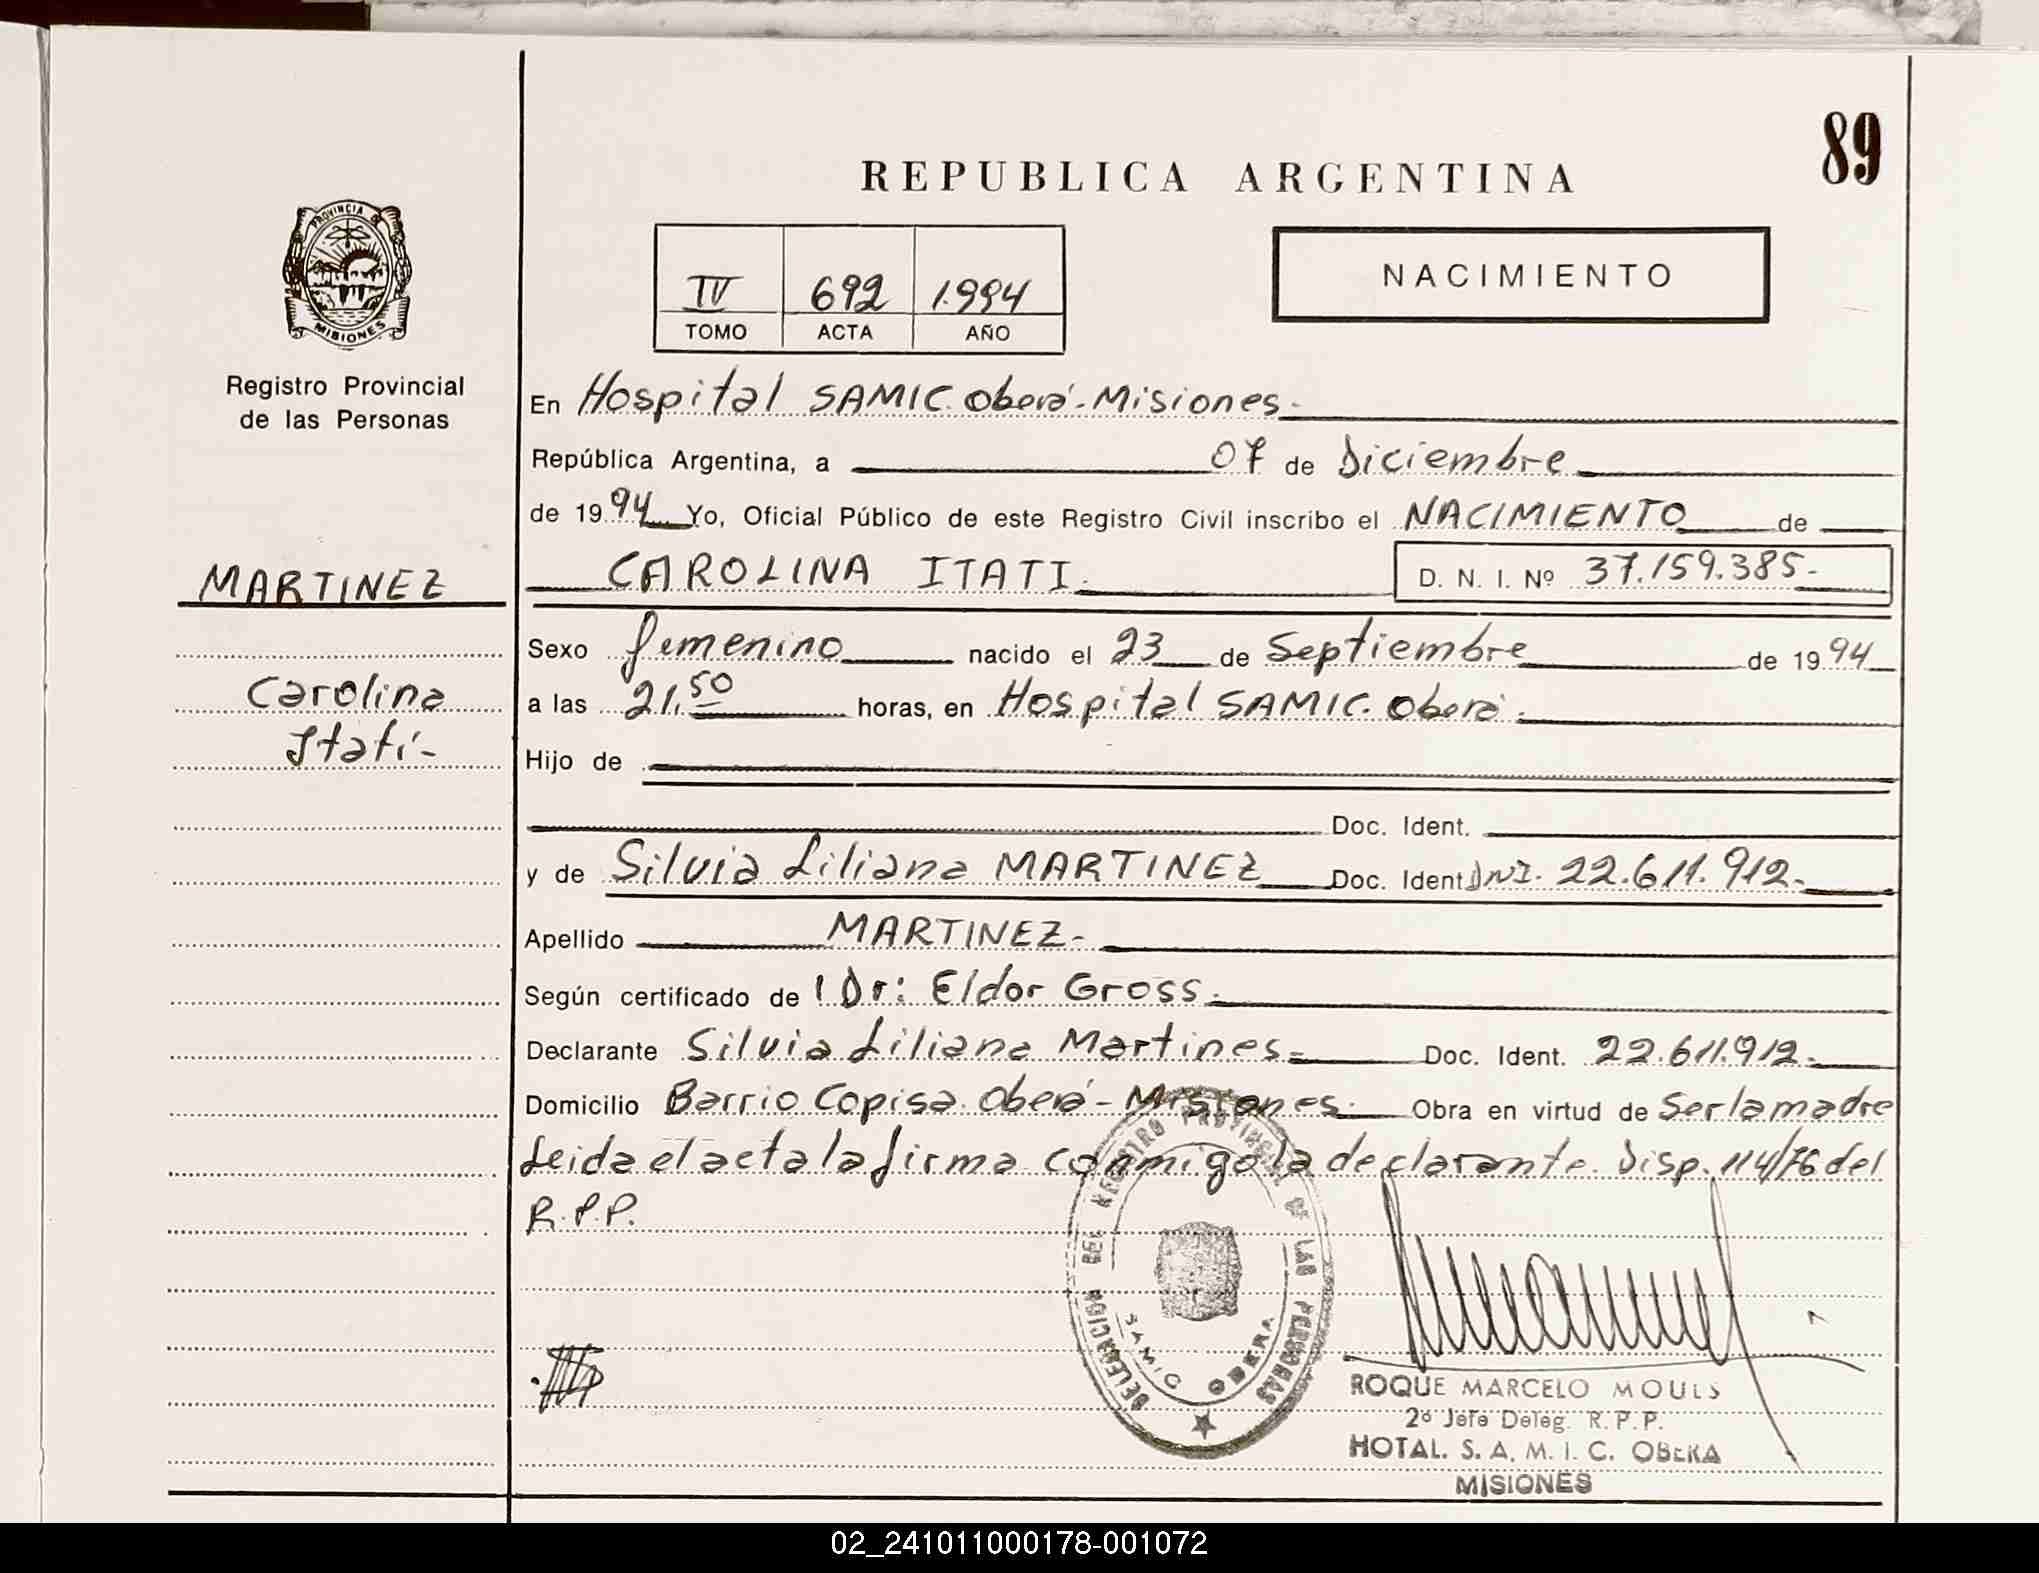 89
REPUBLICA ARGENTINA
PROVINCIA DE
MISIONES
Registro Provincial
de las Personas
IV 692 1.994
TOMO ACTA AÑO
NACIMIENTO
En Hospital SAMIC. Oberá - Misiones.-
República Argentina, a 07 de Diciembre
de 1994 Yo, Oficial Público de este Registro Civil inscribo el NACIMIENTO de
MARTINEZ
CAROLINA ITATI.
D. N. I. Nº 37.159.385.-
Carolina
Itatí-
Sexo femenino nacido el 23 de Septiembre de 1994
a las 21,50 horas, en Hospital SAMIC. Oberá.
Hijo de
Doc. Ident.
y de Silvia Liliana MARTINEZ Doc. Ident. DNI. 22.611.912.-
Apellido MARTINEZ-
Según certificado de Dr: Eldor Gross.
Declarante Silvia Liliana Martines.= Doc. Ident. 22.611.912.-
Domicilio Barrio Copisa. Oberá - Misiones. Obra en virtud de Ser la madre
Leida el acta la firma conmigo la declarante. Disp. 114/76 del
R.P.P.
DELEGACION DEL REGISTRO PROVINCIAL DE LAS PERSONAS
SAMIC OBERA
ROQUE MARCELO MOULS
2º Jefe Deleg. R. P. P.
HOTAL. S. A. M. I. C. OBERA
MISIONES
02_241011000178-001072